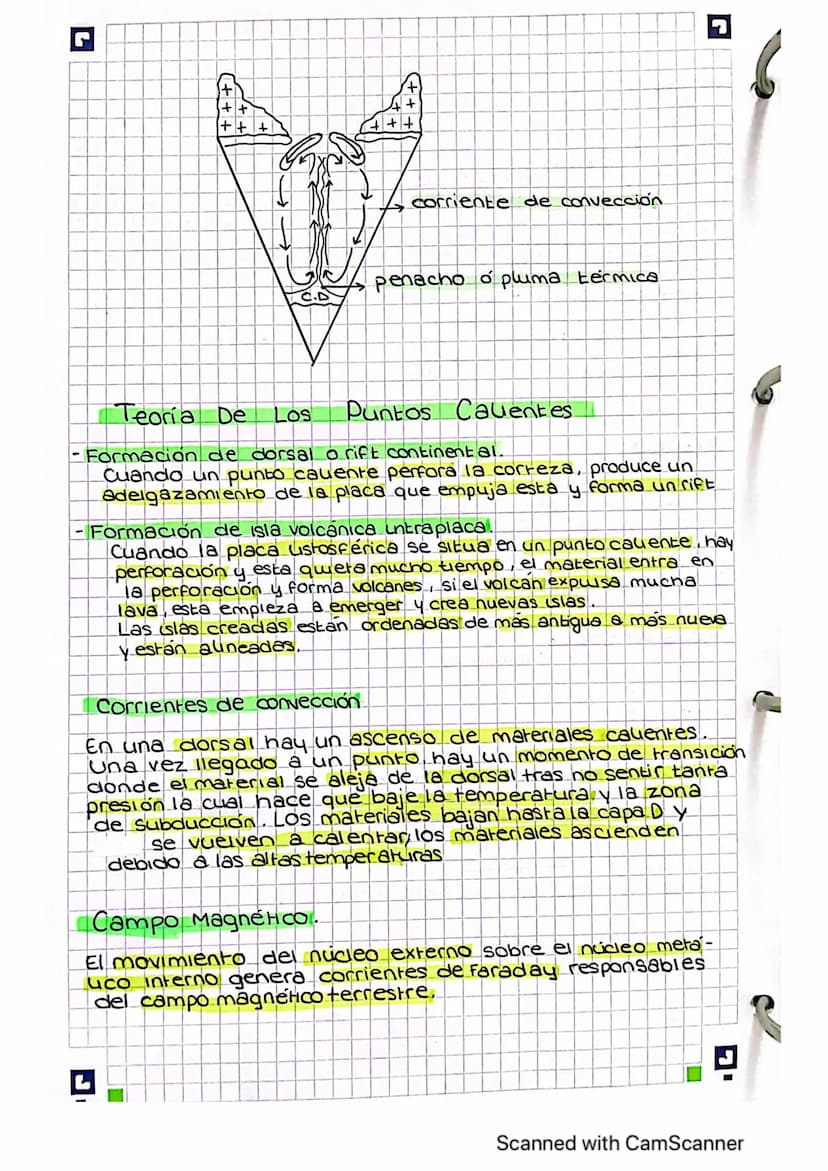 +
+ +
+ + +
+
+ +
+ + +
corriente de convección
penacho ó pluma térmica
C.D
Teoría De Los Puntos Calientes
- Formación de dorsal o rift continental.
Cuando un punto caliente perfora la corteza, produce un
adelgazamiento de la placa que empuja esta y forma un rift
- Formación de isla volcánica intraplaca.
Cuando la placa listosférica se situa en un punto caliente, hay
perforación y esta quieta mucho tiempo, el material entra en
la perforación y forma volcanes, si el volcán expulsa mucha
lava, esta empieza a emerger y crea nuevas islas.
Las islas creadas están ordenadas de más antigua a más nueva
y están alineadas.
Corrientes de convección
En una dorsal hay un ascenso de materiales calientes.
Una vez llegado a un punto, hay un momento de transición
donde el material se aleja de la dorsal tras no sentir tanta
presión la cual hace que baje la temperatura y la zona
de subducción. Los materiales bajan hasta la capa D y
se vuelven a calentar, los materiales ascienden
debido a las altas temperaturas
Campo Magnético.
El movimiento del núcleo externo sobre el núcleo metá-
lico interno genera corrientes de Faraday responsables
del campo magnético terrestre.
Scanned with CamScanner